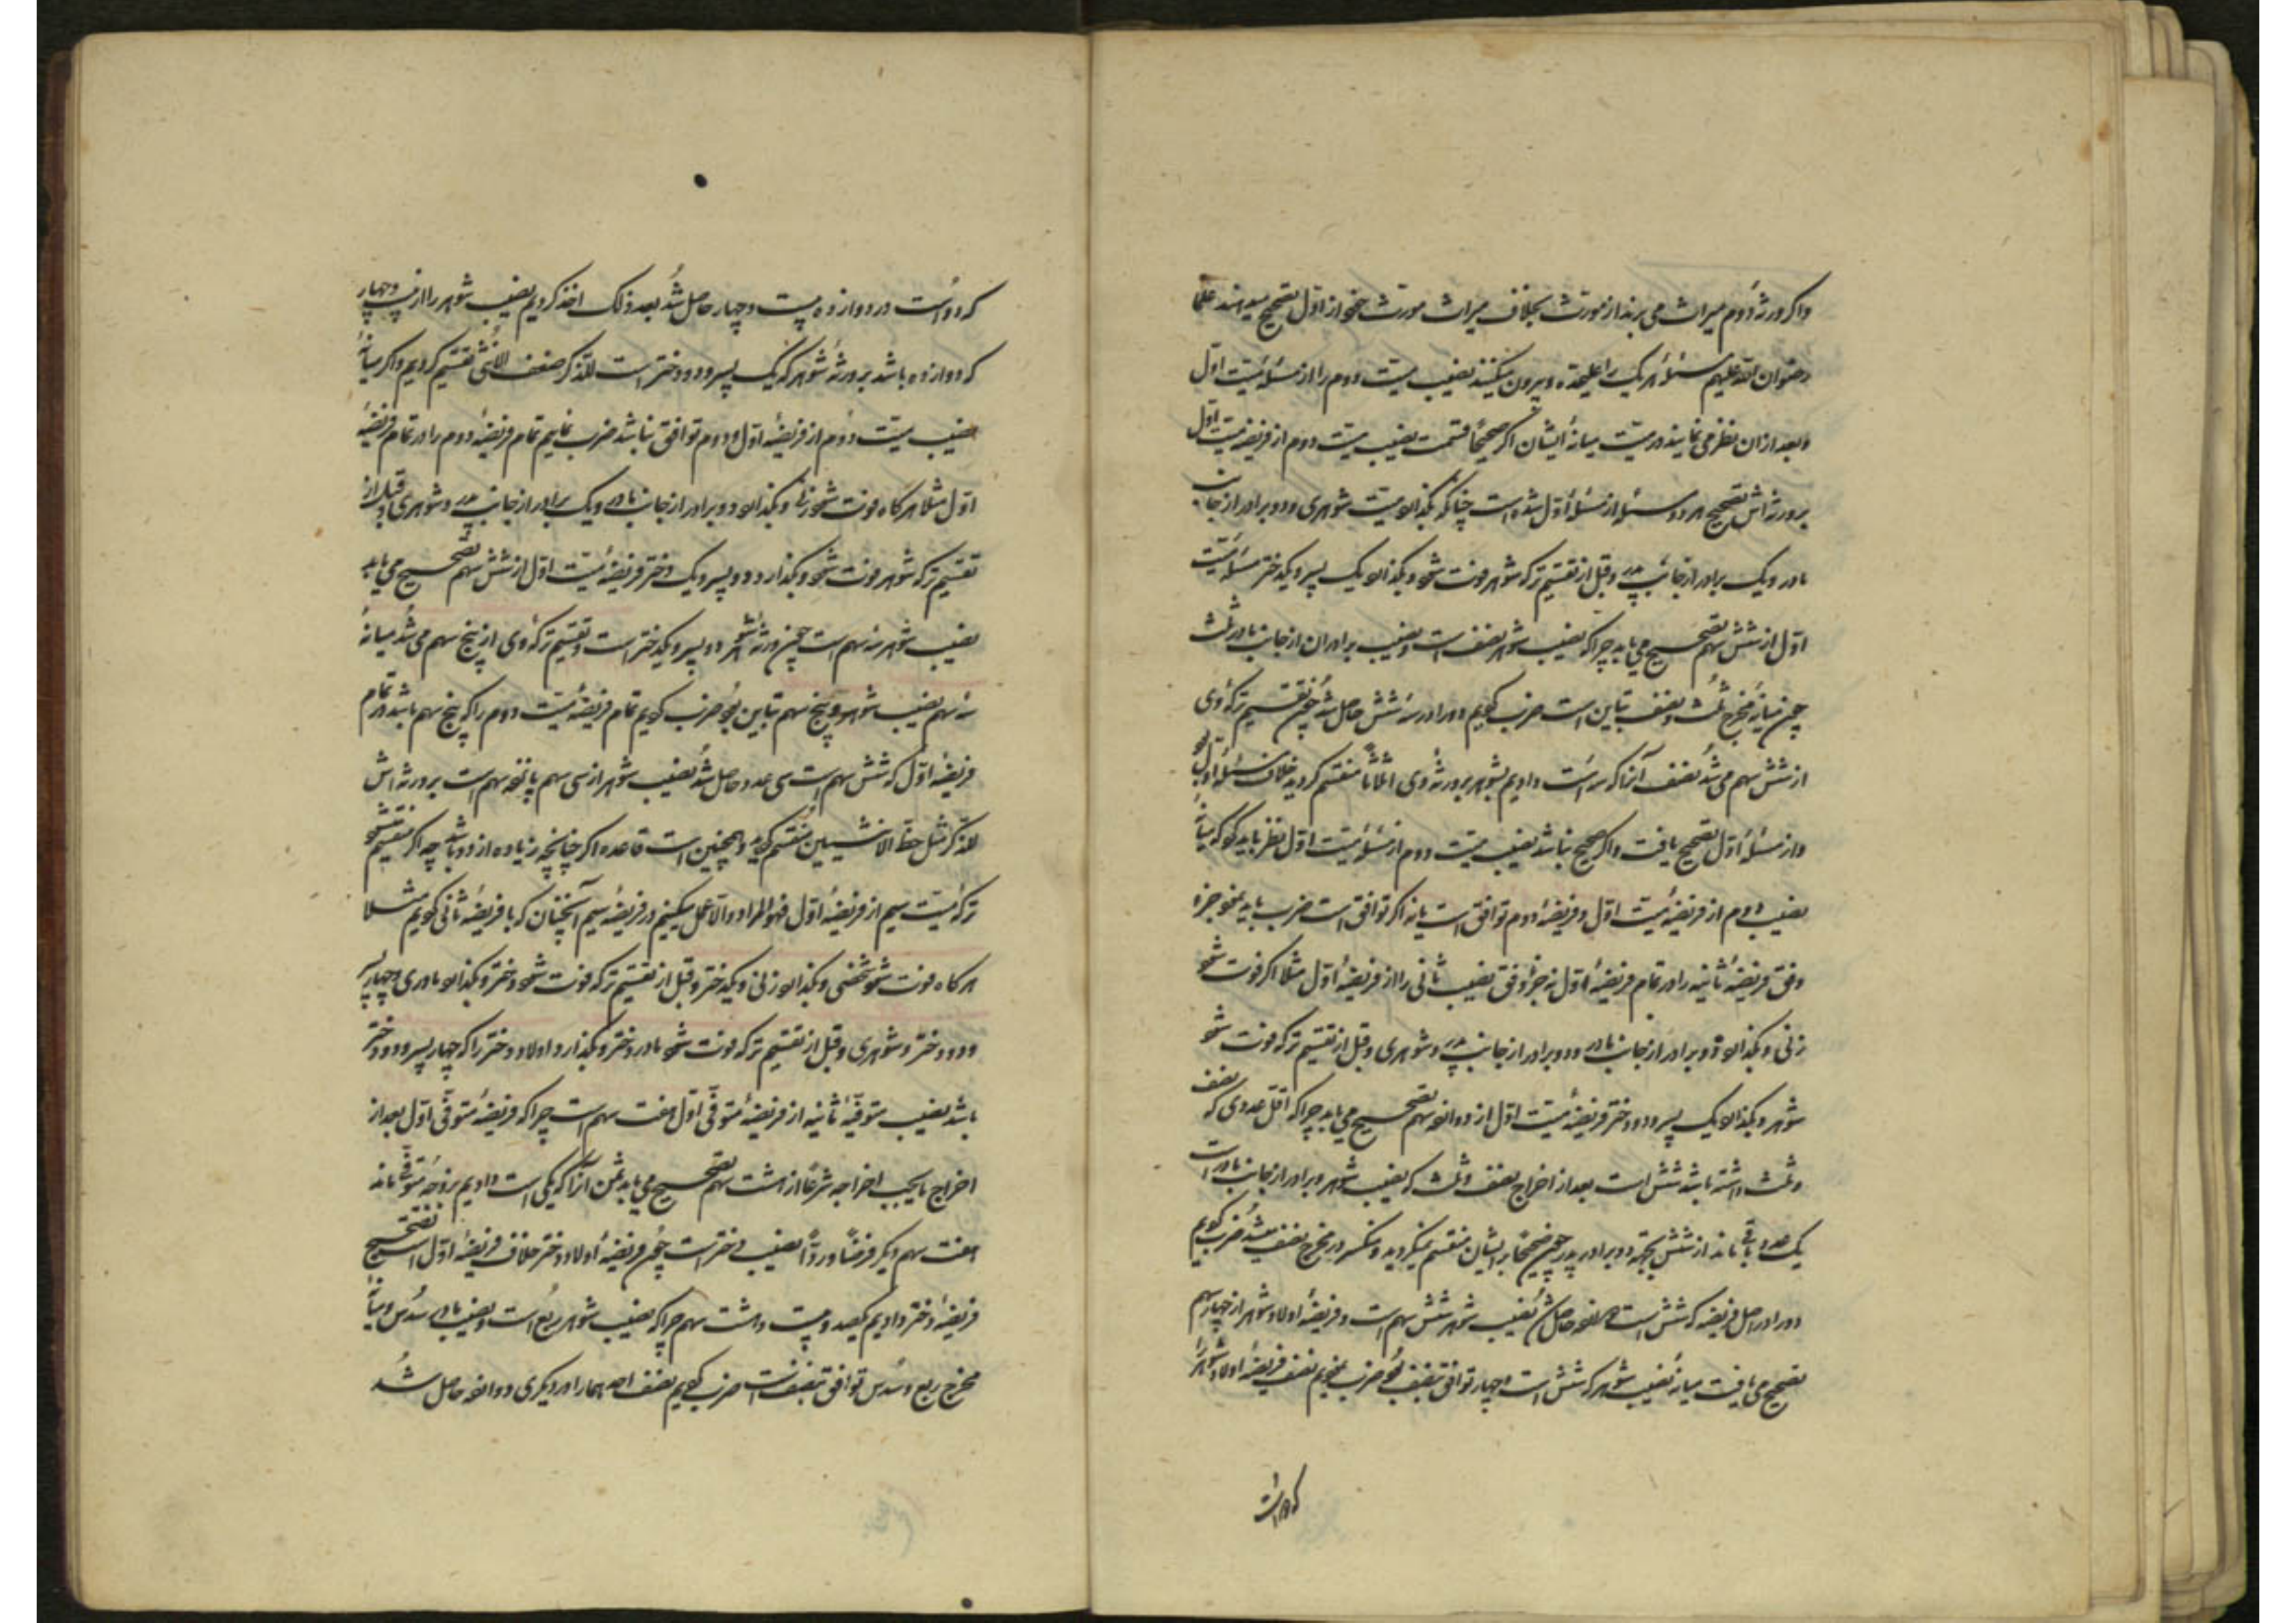 واکر ورثهٔ دوم میراث می برند از مورث بخلاف میراث مورث خود از اوّل تصحیح میدهند علما
رضوان الله علیهم مسئلهٔ هر یک را علیحده و بیرون میکنند نصیب میت دوم را از مسئلهٔ میّت اوّل
و بعد از ان نظر می نمایند در میّت میانهٔ ایشان اکر صحیحاً قسمت نصیب میت دوم از فریضهٔ میت اوّل
بر ورثه اش تصحیح هر دو مسئله از مسئلهٔ اوّل شده است چنانکه بگذارد میّت شوهری و دو برادر از جانب
مادر و یک برادر از جانب پدر و قبل از تقسیم ترکه شوهر فوت شود و بگذارد یک پسر و یکدختر مسئلهٔ میّت
اوّل از شش سهم تصحیح می یابد چرا که نصیب شوهر نصف است و نصیب برادران از جانب مادر ثلث
چون میانهٔ مخرج ثلث و نصف تباین است ضرب کردیم دو را در سه شش حاصل شد چون تقسیم ترکه وی
از شش سهم می شد نصف آنرا که سه است دادیم بشوهر بر ورثهٔ وی اثلاثاً منقسم کردید خلاف مسئلهٔ اوّل بود
و از مسئلهٔ اوّل تصحیح یافت و اکر صحیح نباشد نصیب میت دوم از مسئلهٔ میّت اوّل نظر باید کرد که میانهٔ
نصیب دوم از فریضهٔ میّت اوّل و فریضهٔ دوم توافق است یا نه اکر توافق است ضرب باید نمود جزء
وفق فریضهٔ ثانیه را در تمام فریضهٔ اوّل نه جزء وفق نصیب ثانی را از فریضهٔ اوّل مثلا اکر فوت شود
زنی و بگذارد دو برادر از جانب مادر و دو برادر از جانب پدر و شوهری و قبل از تقسیم ترکه فوت شود
شوهر و بگذارد یک پسر و دو دختر فریضهٔ میّت اوّل از دوازده سهم تصحیح می یابد چرا که اقل عددی که نصف
و ثلث داشته باشد شش است بعد از اخراج نصف و ثلث که نصیب شوهر و برادر از جانب مادر است
یک عدد باقی ماند از شش بجهة دو برادر پدر چون صحیحاً بر ایشان منقسم نمیکردید و منکسر در مخرج نصف میشد ضرب کردیم
دو را در اصل فریضه که شش است دوازده حاصل شد نصیب شوهر شش سهم است و فریضهٔ اولاد شوهر از چهار سهم
تصحیح می یافت میانهٔ نصیب شوهر که شش است و چهار توافق بنصف بود ضرب نمودیم نصف فریضهٔ اولاد شوهر را
که دو است
که دو است در دوازده بیست و چهار حاصل شد بعد ذلک اخذ کردیم نصیب شوهر را از بیست و چهار
که دوازده باشد بر ورثهٔ شوهر که یک پسر و دو دختر است للذکر ضعف الانثی تقسیم کردیم و اکر میانهٔ
نصیب میّت دوم از فریضهٔ اوّل و دوم توافق نباشد ضرب نمایم تمام فریضهٔ دوم را در تمام فریضهٔ
اوّل مثلا هر کاه فوت شود زنی و بگذارد دو برادر از جانب مادر و یک برادر از جانب پدر و شوهری و قبل از
تقسیم ترکه شوهر فوت شود و بگذارد دو پسر و یک دختر فریضهٔ میّت اوّل از شش سهم تصحیح می یابد
نصیب شوهر سه سهم است چون ورثهٔ شوهر دو پسر و یکدختر است و تقسیم ترکهٔ وی از پنج سهم می شد میانهٔ
سه سهم نصیب شوهر و پنج سهم تباین بود ضرب کردیم تمام فریضهٔ میّت دوم را که پنج سهم باشد در تمام
فریضهٔ اوّل که شش سهم است سی عدد حاصل شد نصیب شوهر از سی سهم پانزده سهم است بر ورثه اش
للذکر مثل حظ الانثیین منقسم کردید و همچنین است قاعده اکر چنانچه زیاده از دو باشد چه اکر منقسم شود
ترکهٔ میّت سیم از فریضهٔ اوّل فهو المراد والا عمل میکنیم در فریضهٔ سیم آنچنان که با فریضهٔ ثانی کردیم مثلا
هر کاه فوت شود شخصی و بگذارد زنی و یکدختر و قبل از تقسیم ترکه فوت شود دختر و بگذارد مادری و چهار پسر
و دو دختر و شوهری و قبل از تقسیم ترکه فوت شود مادر دختر و بگذارد اولاد دختر را که چهار پسر و دو دختر
باشد نصیب متوفّیهٔ ثانیه از فریضهٔ متوفّی اوّل هفت سهم است چرا که فریضهٔ متوفّی اوّل بعد از
اخراج مایجب اخراجه شرعاً از هشت سهم تصحیح می یابد ثمن آنرا که یکی است دادیم بزوجهٔ متوفّی ماند
هفت سهم دیکر فرضاً و ردّاً نصیب دختر است چون فریضهٔ اولاد دختر خلاف فریضهٔ اوّل است تصحیح
فریضهٔ دختر دادیم یکصد و بیست و هشت سهم چرا که نصیب شوهر ربع است و نصیب مادر سدس و میانهٔ
مخرج ربع و سدس توافق بنصف است ضرب کردیم نصف احدهما را در دیکری دوازده حاصل شد